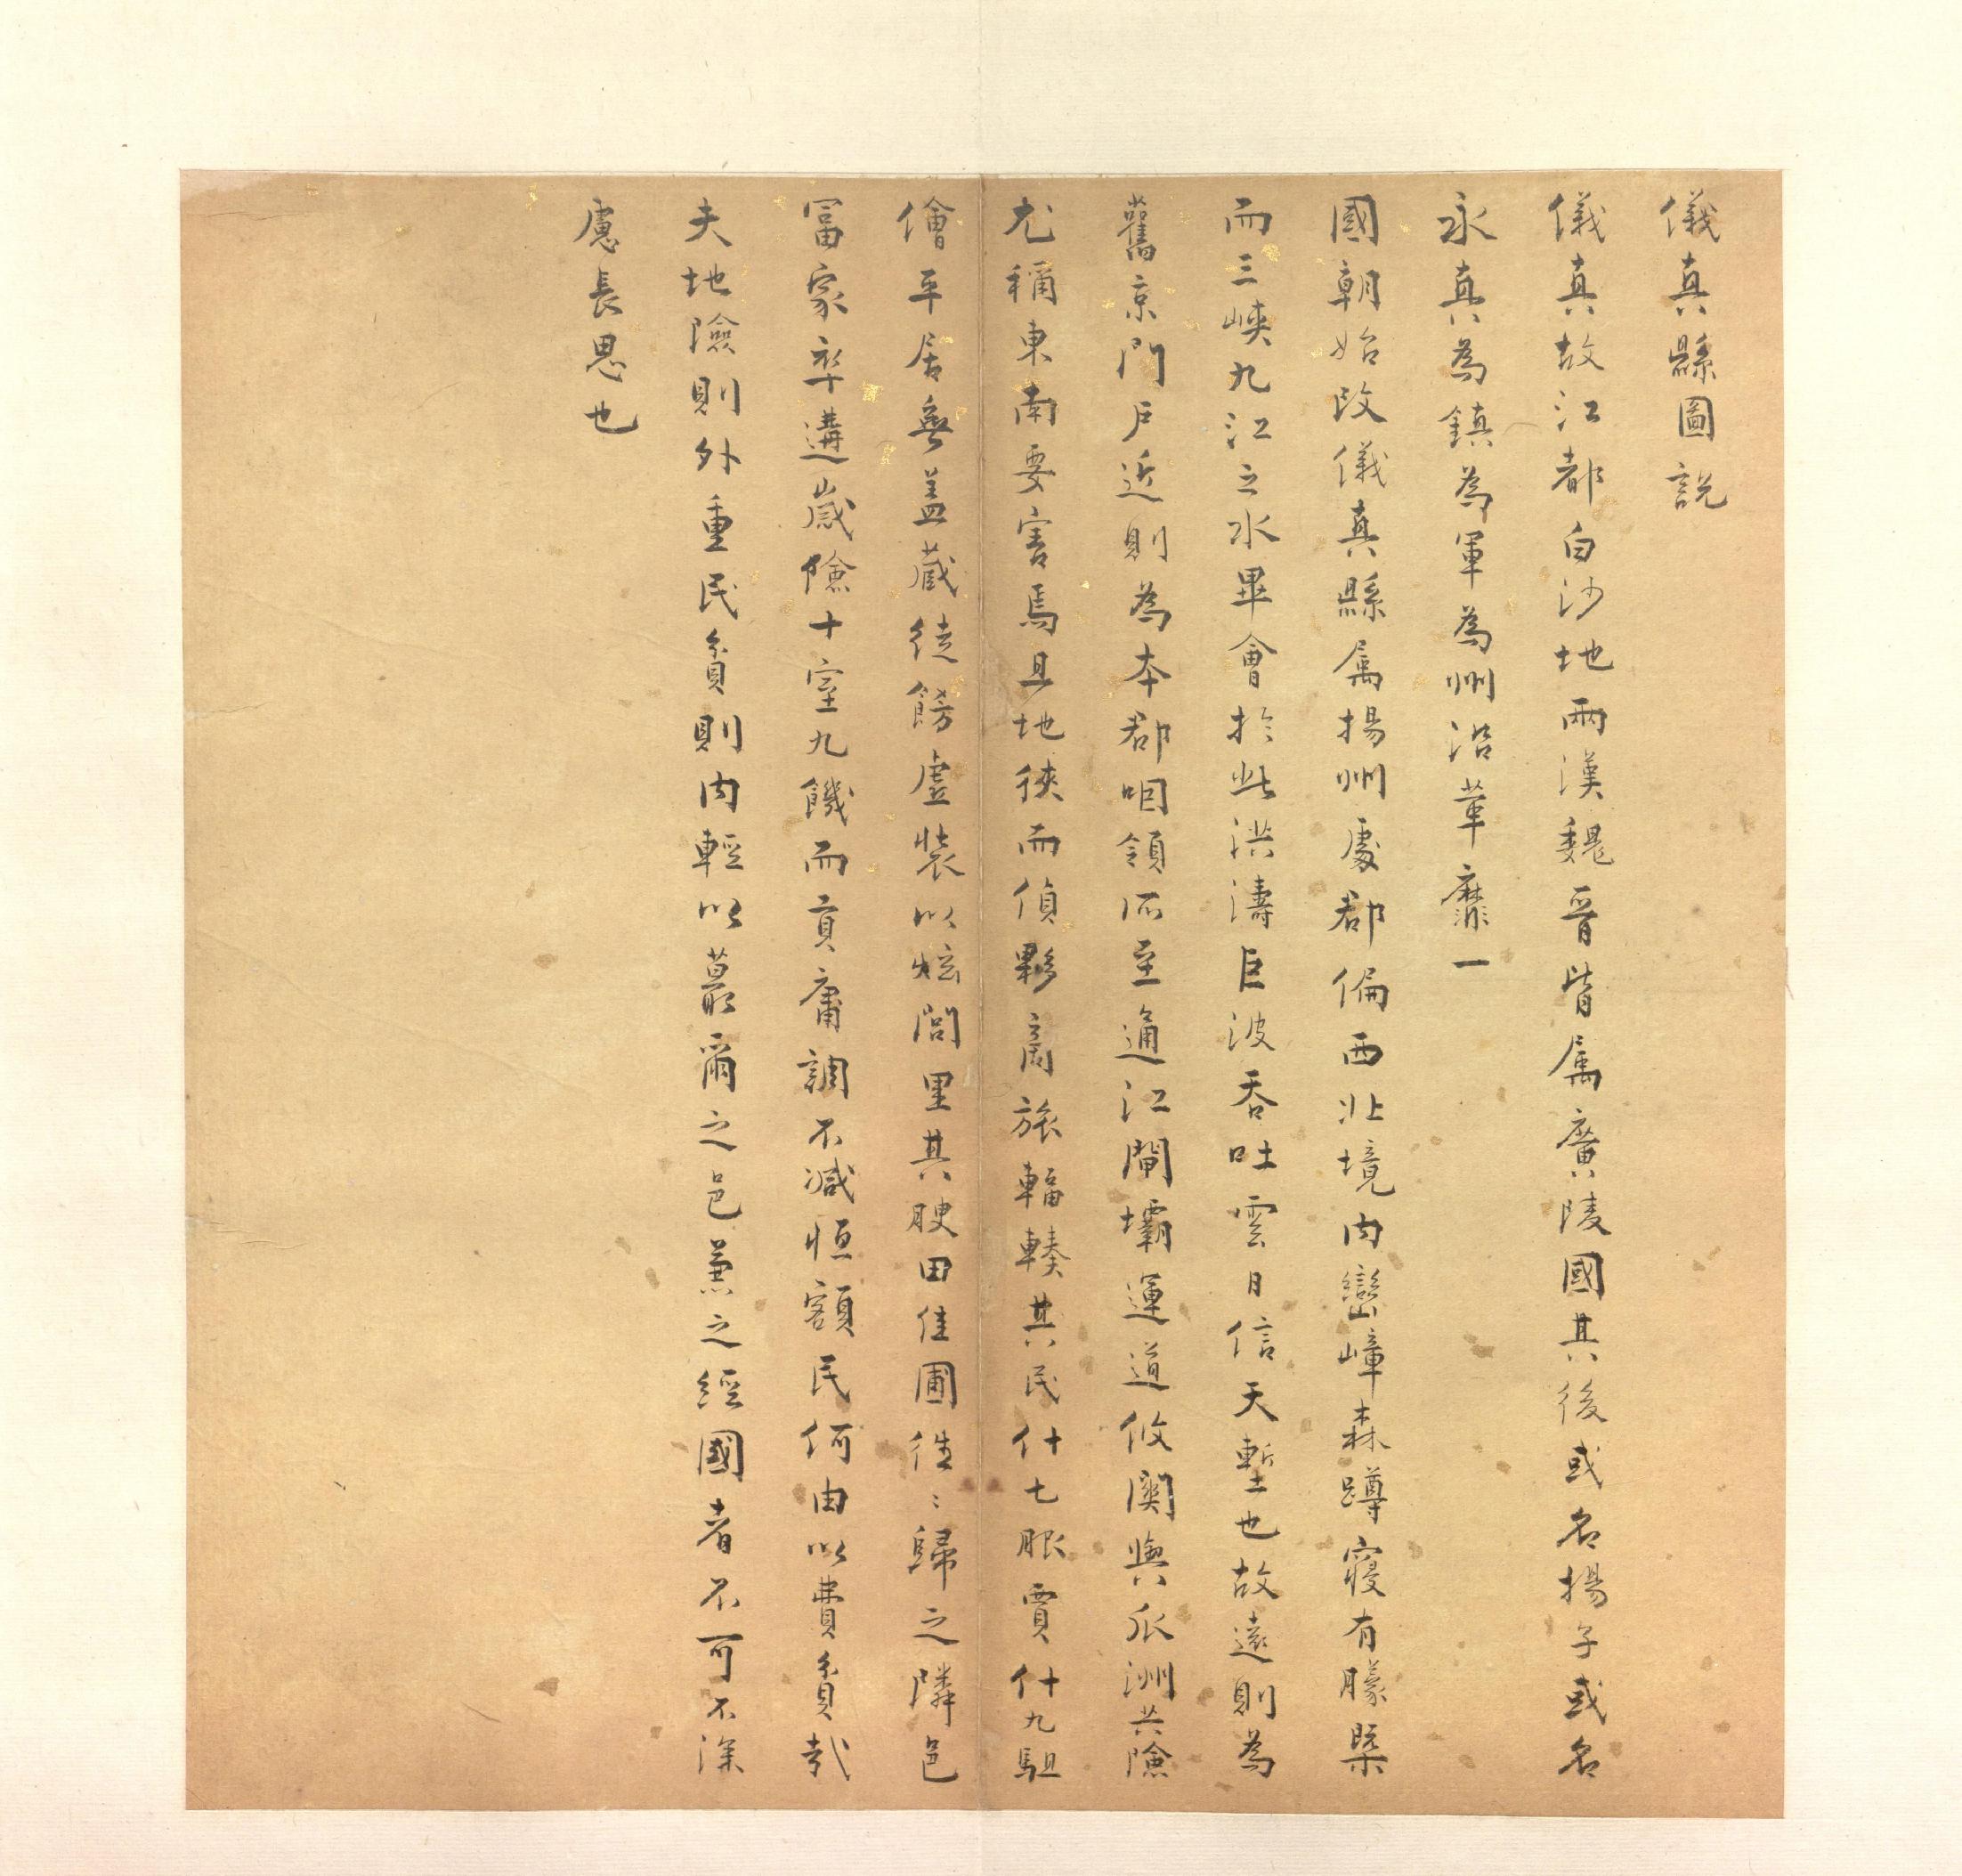 儀真縣圖說
儀真故江都白沙地兩漢魏晉皆属廣陵國其後或名揚子或名
永真為鎮為軍為州沿革靡一
國朝始改儀真縣属揚州處郡偏西北境內巒嶂森蹲寢有朦槩
而三峽九江之水畢會於此洪濤巨波吞吐雲日信天塹也故遠則為
舊京門戶近則為本郡咽領所至通江閘壩運道攸関與瓜洲共險
尤稱東南要害焉且地狹而偵夥商旅輻輳其民什七服賈什九駔
儈平居無盖蔵徒餝虛裝以炫閭里其腴田佳圃徃〻歸之隣邑
冨家率遘歲險十室九饑而貢庸調不減恒額民何由以費貟哉
夫地險則外重民貧則內輕以蕞爾之邑蒹之經國者不可不深
慮長思也